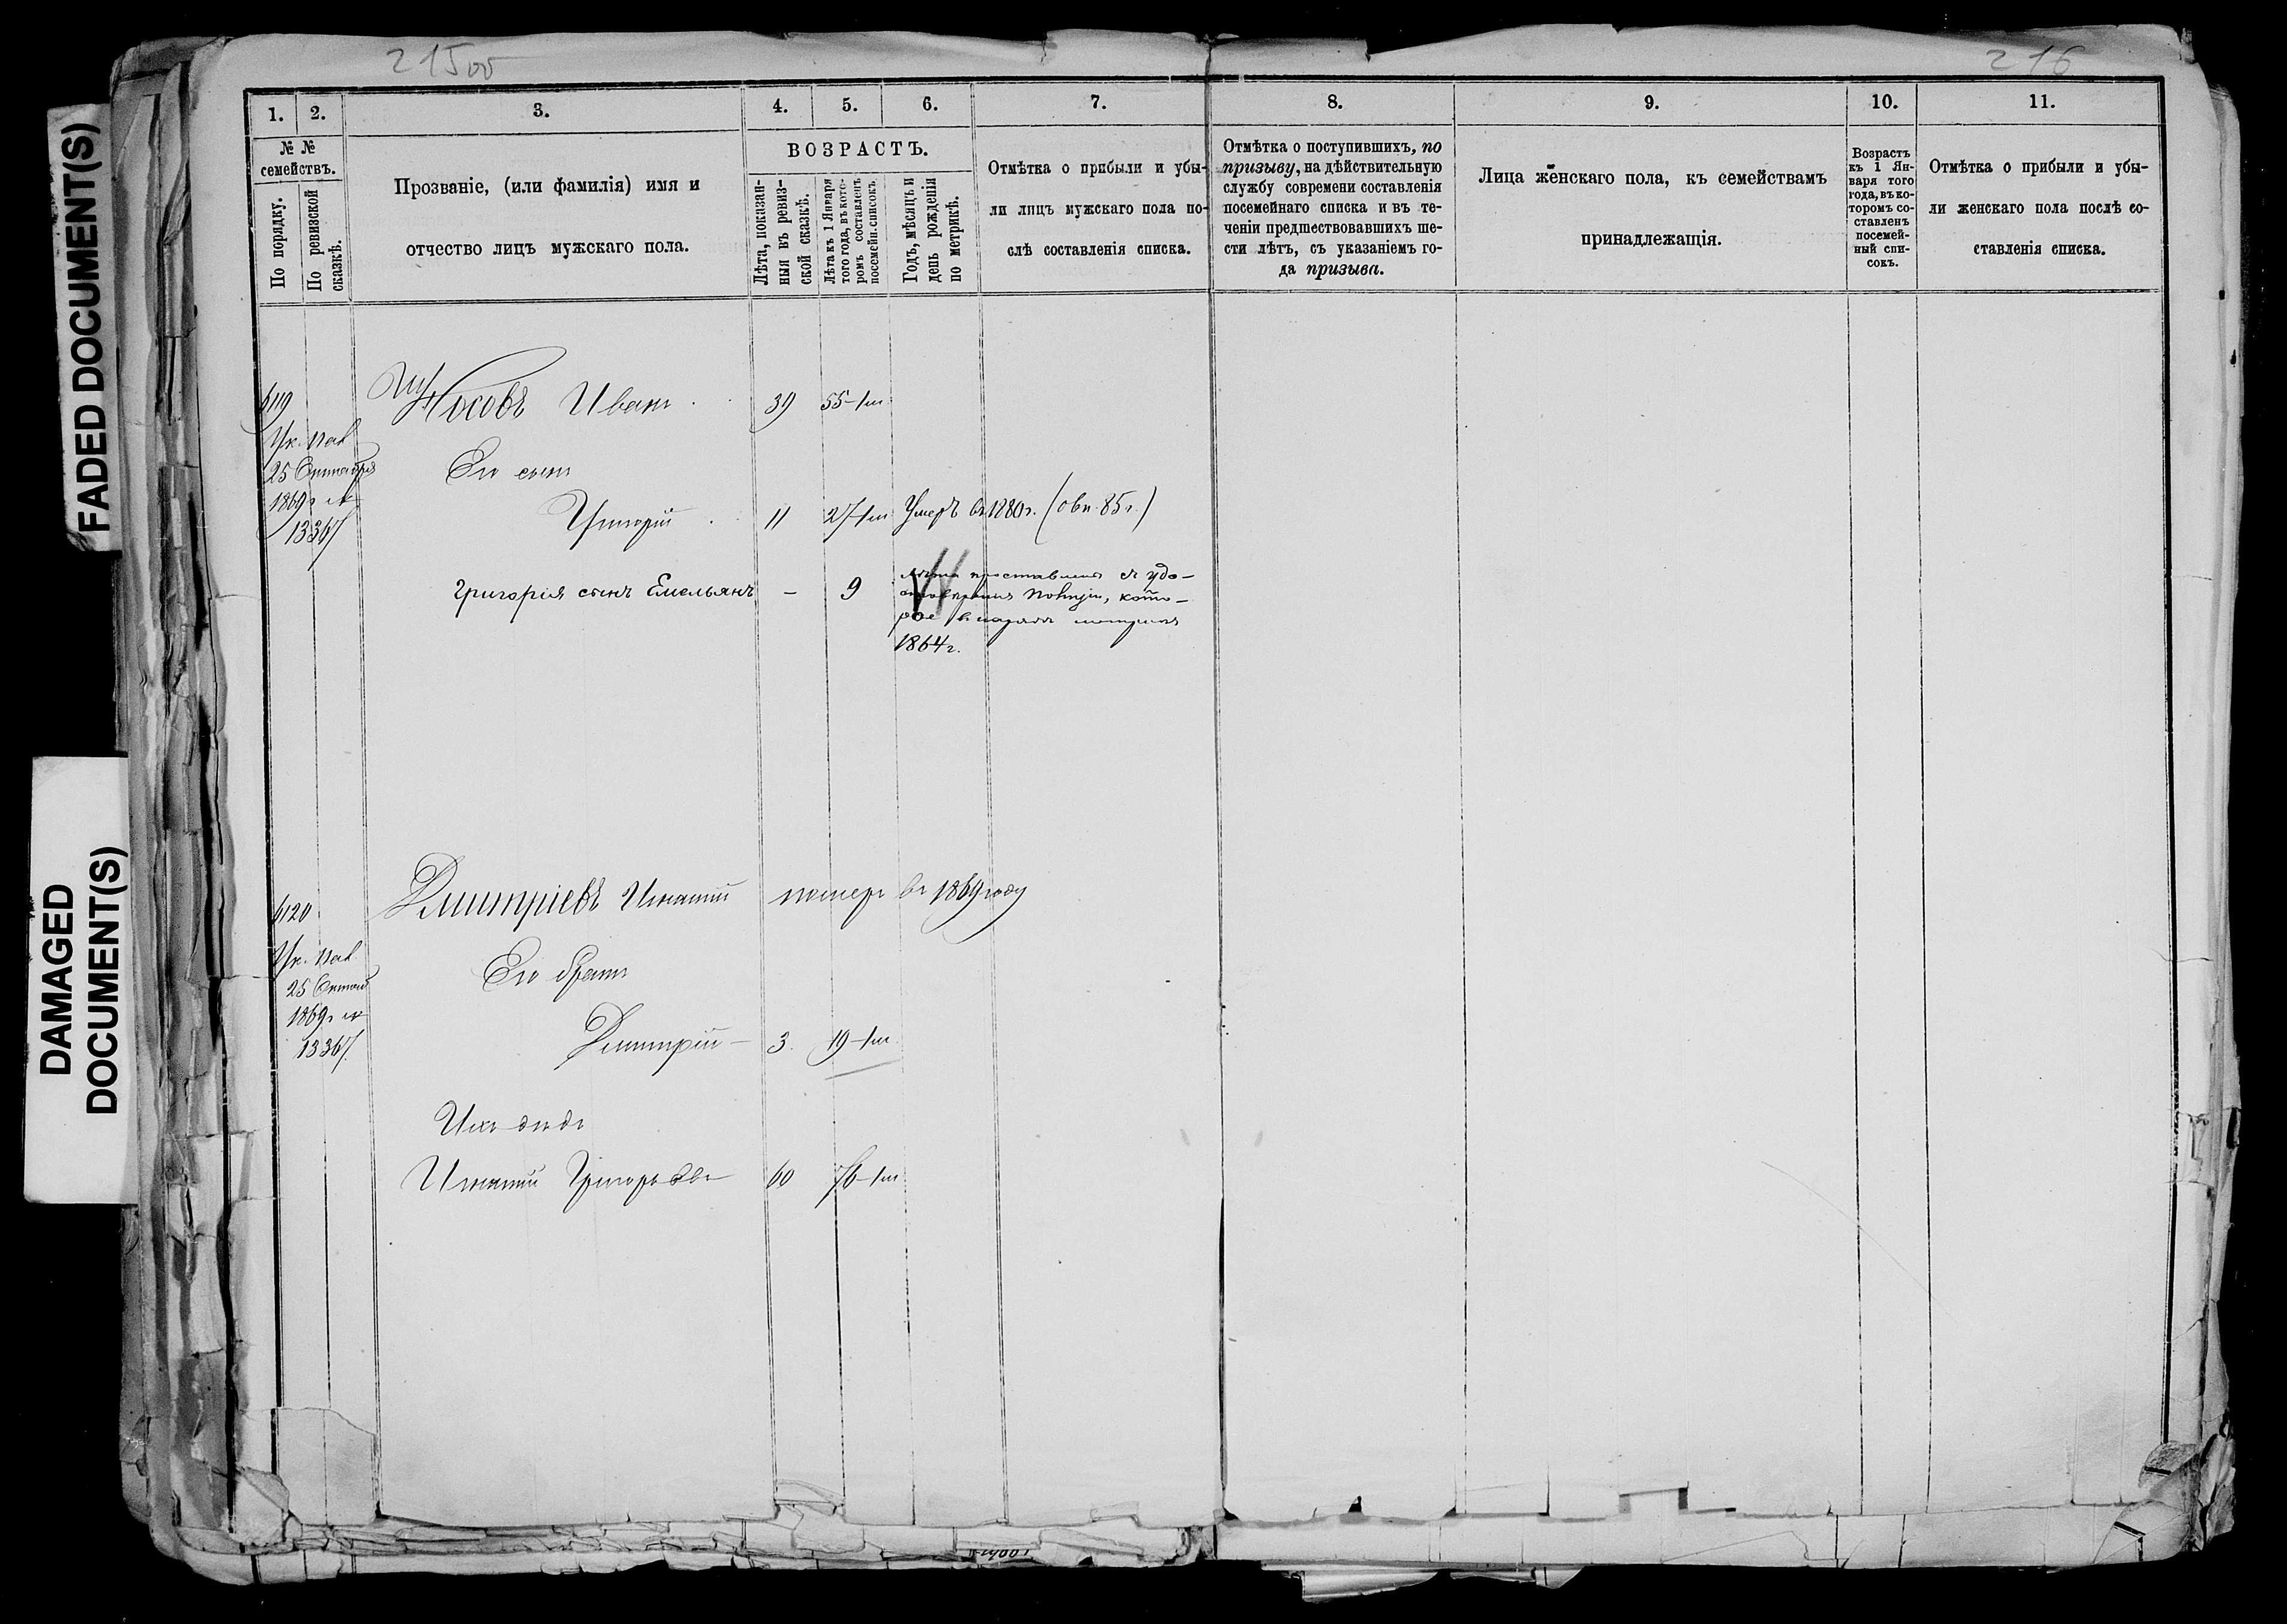 21500
216
FADED DOCUMENT(S)
DAMAGED
DOCUMENT(S)
1. 2. 3. 4. 5. 6. 7. 8. 9. 10. 11.
№ №
семействъ.
По порядку.
По ревизской
сказкѣ.
Прозваніе, (или фамилія) имя и
отчество лицъ мужскаго пола.
ВОЗРАСТЪ.
Лѣта, показан-
ныя въ ревиз-
ской сказкѣ.
Лѣта къ 1 Января
того года, въ кото-
ромъ составленъ
посемейн. списокъ.
Годъ, мѣсяцъ и
день рожденія
по метрикѣ.
Отмѣтка о прибыли и убы-
ли лицъ мужскаго пола по-
слѣ составленія списка.
Отмѣтка о поступившихъ, по
призыву, на дѣйствительную
службу современи составленія
посемейнаго списка и въ те-
ченіи предшествовавшихъ ше-
сти лѣтъ, съ указаніемъ го-
да призыва.
Лица женскаго пола, къ семействамъ
принадлежащія.
Возрастъ
къ 1 Ян-
варя того
года, въ ко-
торомъ со-
ставленъ
посемей-
ный спи-
сокъ.
Отмѣтка о прибыли и убы-
ли женскаго пола послѣ со-
ставленія списка.
Носовъ Иванъ 39 55
Ук. Пал
25 Октября
1869 г №
13367
Его сынъ
Григорій 11 27 Умеръ въ 1880 г. (85 г.)
Григорія сынъ Емельянъ – 9
лѣта проставлены съ удо-
кото-
рое
1864 г.
Дмитріевъ Игнатій померъ въ 1869 году
Ук. Пал
25
1869 г №
13367
Его братъ
Дмитрій 3 19
Ихъ дѣдъ
Игнатій Григорьевъ 60 76